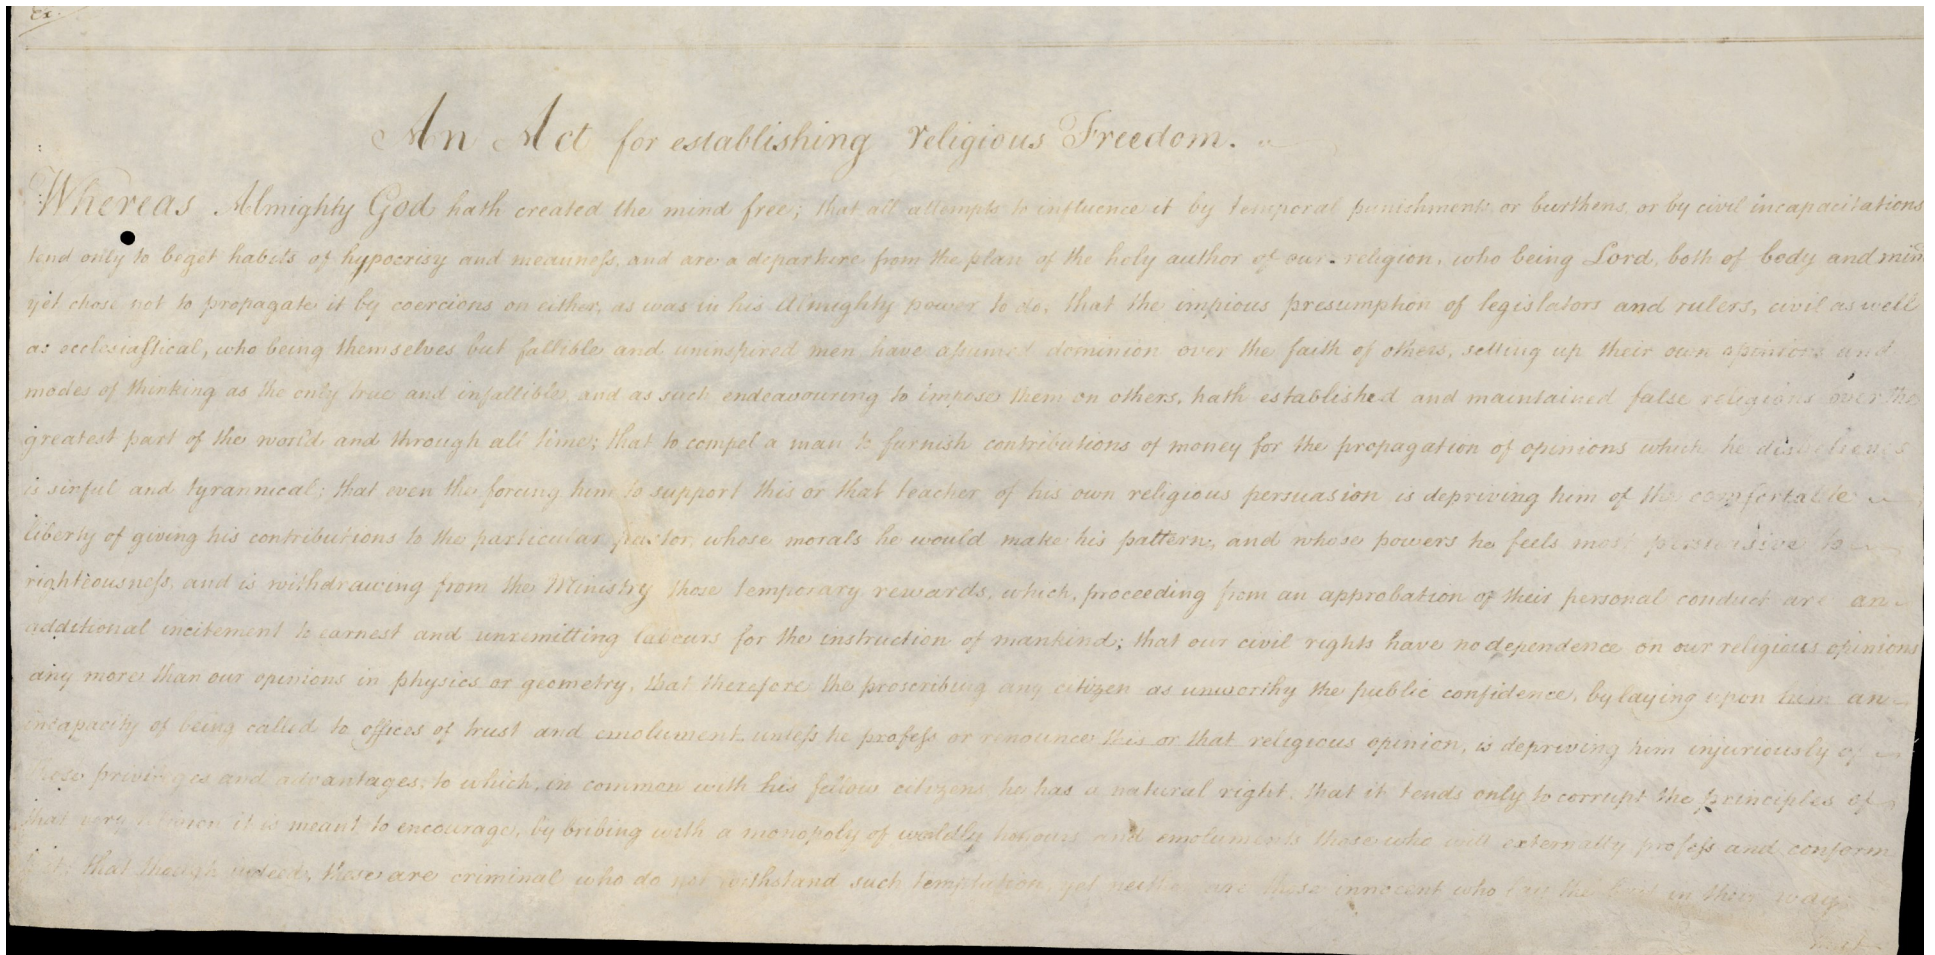 &c.
An Act for establishing religious Freedom.
Whereas Almighty God hath created the mind free; that all attempts to influence it by temporal punishments or burthens, or by civil incapacitations
tend only to beget habits of hypocrisy and meanness, and are a departure from the plan of the holy author of our religion, who being Lord, both of body and mind
yet chose not to propagate it by coercions on either, as was in his Almighty power to do, that the impious presumption of legislators and rulers, civil as well
as ecclesiastical, who being themselves but fallible and uninspired men have assumed dominion over the faith of others, setting up their own opinions and
modes of thinking as the only true and infallible, and as such endeavouring to impose them on others, hath established and maintained false religions over the
greatest part of the world and through all time; that to compel a man to furnish contributions of money for the propagation of opinions which he disbelieves
is sinful and tyrannical; that even the forcing him to support this or that teacher of his own religious persuasion is depriving him of the comfortable
liberty of giving his contributions to the particular pastor whose morals he would make his pattern, and whose powers he feels most persuasive to
righteousness, and is withdrawing from the Ministry those temporary rewards, which, proceeding from an approbation of their personal conduct are an
additional incitement to earnest and unremitting labours for the instruction of mankind; that our civil rights have no dependence on our religious opinions
any more than our opinions in physics or geometry, that therefore the proscribing any citizen as unworthy the public confidence, by laying upon him an
incapacity of being called to offices of trust and emolument, unless he profess or renounce this or that religious opinion, is depriving him injuriously of
those privileges and advantages, to which, in common with his fellow citizens, he has a natural right, that it tends only to corrupt the principles of
that very religion it is meant to encourage, by bribing with a monopoly of worldly honours and emoluments those who will externally profess and conform
that though indeed, these are criminal who do not withstand such temptation, yet neither are those innocent who lay the bait in their way;